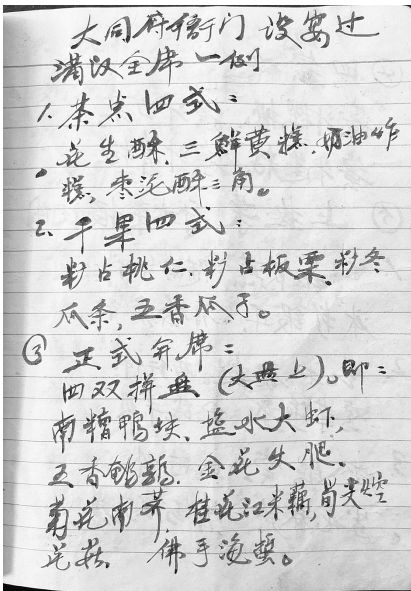 大同府衙门设宴过
满汉全席一例
1. 茶点四式：
花生酥、三鲜黄糕、奶油炸
糕，枣泥酥三角。
2. 干果四式：
粘占桃仁、粘占板栗、粘冬
瓜条，五香瓜子。
③ 正式弁席：
四双拼盘（大盘上）。即：
南糟鸭块、盐水大虾，
五香鹌鹑、金花失肥、
菊花南荠、桂花江米藕，
花菇、佛手海蜇。